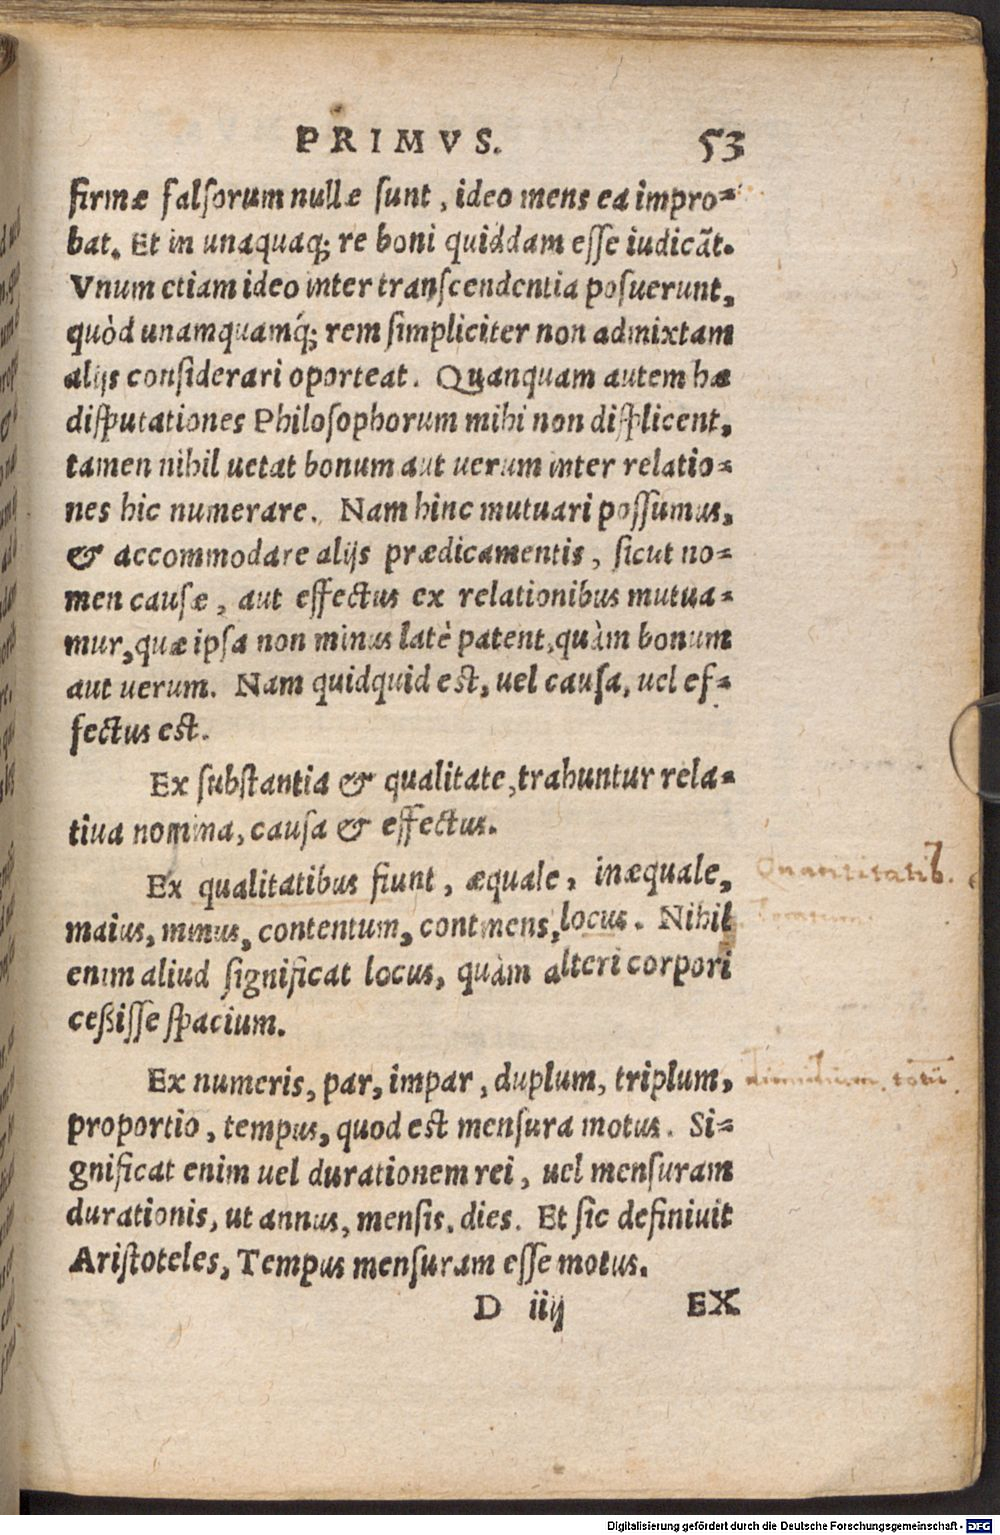 PRIMVS. 53
firmæ falſorum nullæ ſunt, ideo mens ea impro=
bat. Et in unaquaq; re boni quiddam eſſe iudicãt.
Vnum etiam ideo inter tranſcendentia poſuerunt,
quòd unamquamq́; rem ſimpliciter non admixtam
alijs conſiderari oporteat. Quanquam autem hæ
diſputationes Philoſophorum mihi non diſplicent,
tamen nihil uetat bonum aut uerum inter relatio=
nes hic numerare. Nam hinc mutuari poſſumus,
& accommodare alijs prædicamentis, ſicut no=
men cauſæ, aut effectus ex relationibus mutua=
mur, quæ ipſa non minus latè patent, quàm bonum
aut uerum. Nam quidquid eſt, uel cauſa, uel ef=
fectus eſt.
Ex ſubſtantia & qualitate, trahuntur rela=
tiua nomina, cauſa & effectus.
Ex qualitatibus fiunt, æquale, inæquale,
Quantitatib.
maius, minus, contentum, continens, locus. Nihil
enim aliud ſignificat locus, quàm alteri corpori
ceßiſſe ſpacium.
Ex numeris, par, impar, duplum, triplum,
dimidium, totū.
proportio, tempus, quod eſt menſura motus. Si=
gnificat enim uel durationem rei, uel menſuram
durationis, ut annus, menſis, dies. Et ſic definiuit
Ariſtoteles, Tempus menſuram eſſe motus.
D iiij EX
Digitalisierung gefördert durch die Deutsche Forschungsgemeinschaft - DFG